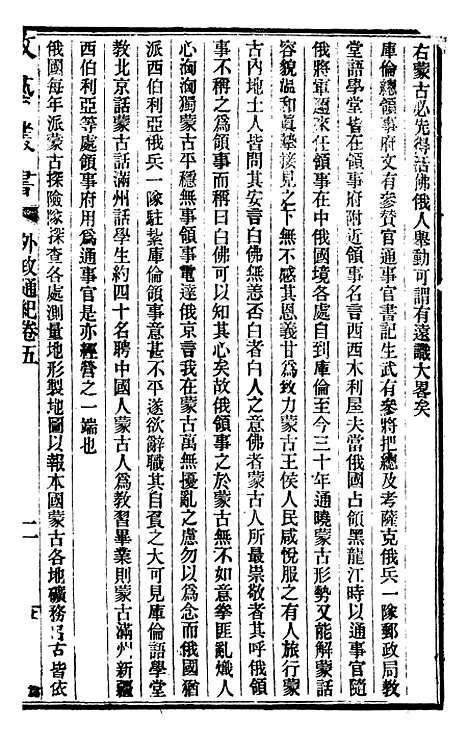 右蒙古必先得活佛俄人舉動可謂有遠識大畧矣
庫倫總領事府文有參贊官通事官書記生武有參將把總及考薩克俄兵一隊郵政局教
堂語學堂皆在領事府附近領事名言西西木利屋夫當俄國占領黑龍江時以通事官隨
俄將軍邇來住在中俄國境各處自到庫倫至今三十年通曉蒙古形勢又能解蒙話
容貌溫和眞摯接見之下無不感其恩義甘爲致力蒙古王侯人民咸悅服之有人旅行蒙
古內地土人皆問其安言白佛無恙否白者白人之意佛者蒙古人所最崇敬者其呼俄領
事不稱之爲領事而稱曰白佛可以知其心矣故俄領事之於蒙古無不如意拳匪亂熾人
心洶洶獨蒙古平穩無事領事電達俄京言我在蒙古萬無擾亂之慮勿以爲念而俄國猶
派西伯利亞俄兵一隊駐紮庫倫領事意甚不平遂欲辭職其自負之大可見庫倫語學堂
教北京話蒙古話滿州話學生約四十名聘中國人蒙古人爲教習畢業則蒙古滿州新疆
西伯利亞等處領事府用爲通事官是亦經營之一端也
俄國每年派蒙古探險隊探查各處測量地形製地圖以報本國蒙古各地礦務蒙古皆依
文藝叢書 外政通紀卷五 二